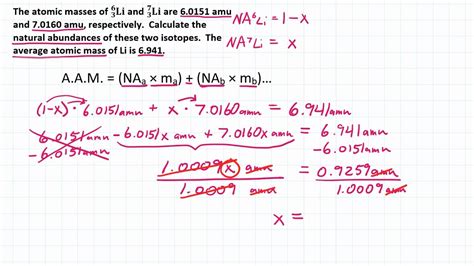 The atomic masses of ⁶₃Li and ⁷₃Li are 6.0151 amu
and 7.0160 amu, respectively. Calculate the
natural abundances of these two isotopes. The
average atomic mass of Li is 6.941.
NA⁶Li = 1-x
NA⁷Li = x
A.A.M. = (NAₐ × mₐ) ± (NA_b × m_b)...
(1-x) · 6.0151amu + x · 7.0160amu = 6.941amu
6.0151amu - 6.0151x amu + 7.0160x amu = 6.941amu
-6.0151amu -6.0151amu
1.0009 x amu = 0.9259 amu
1.0009 amu 1.0009 amu
x =